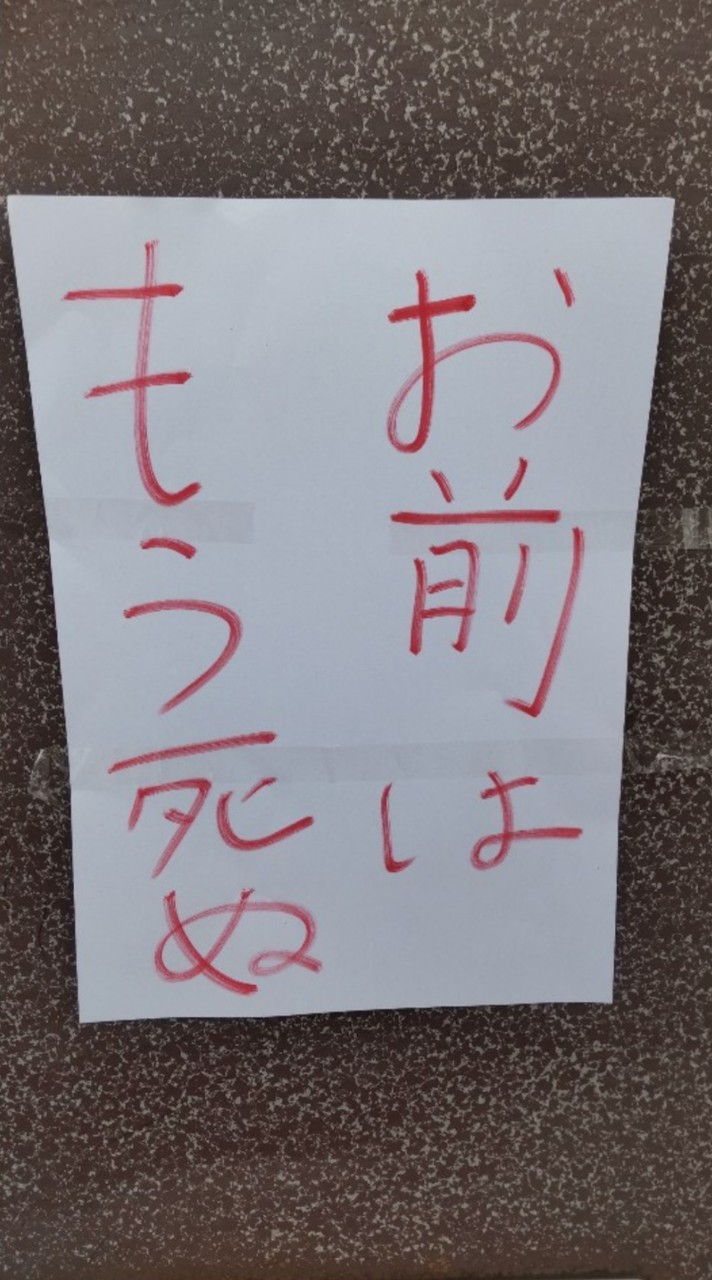 お前は
もう死ぬ